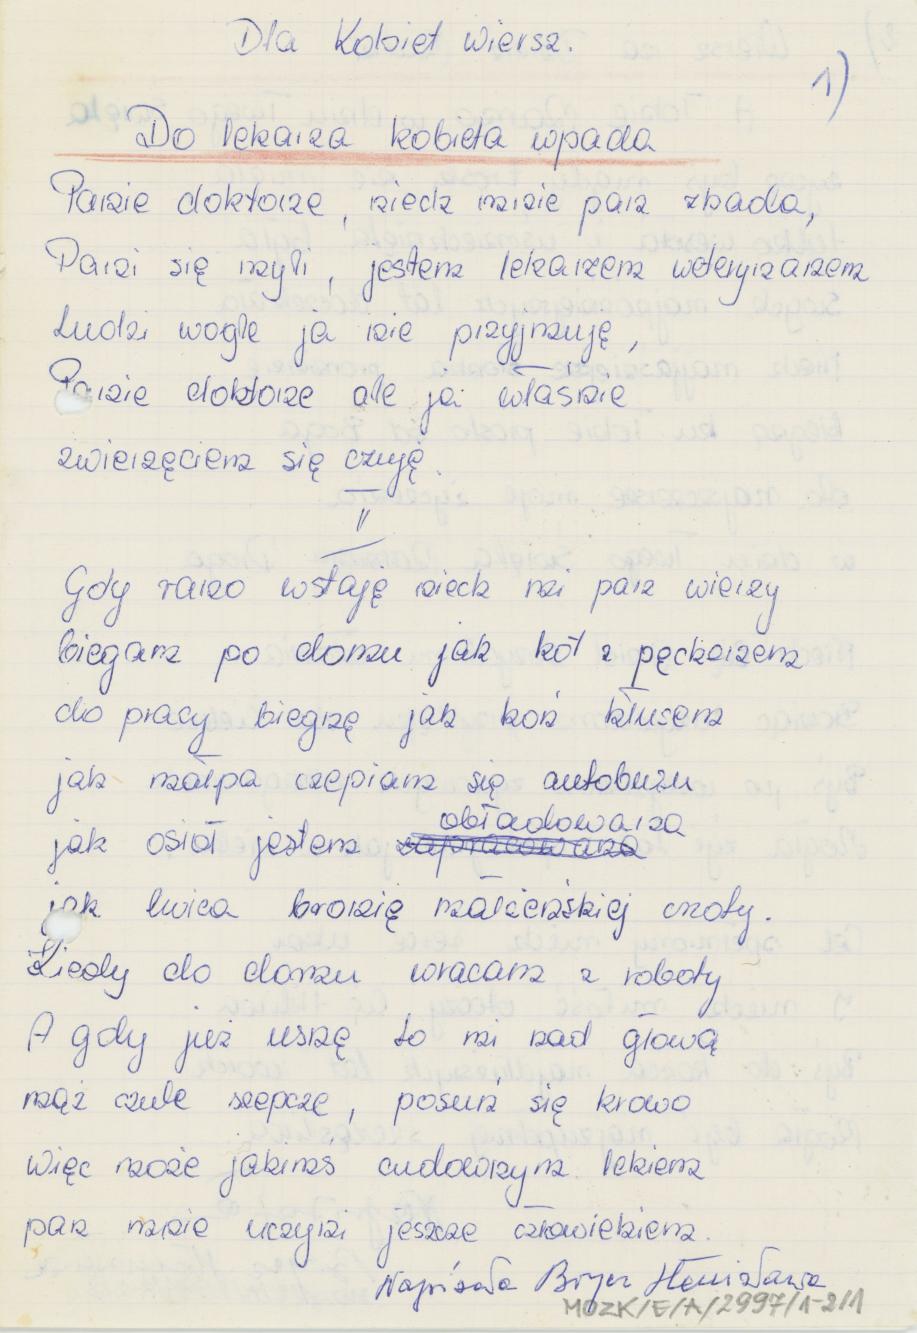 Dla Kobiet wiersz.
1)
Do lekarza kobieta wpada
Panie doktorze, niech mnie pan zbada,
Pani się myli, jestem lekarzem weterynarzem
Ludzi wogle ja nie przyjmuję,
Panie doktorze ale ja właśnie
zwierzęciem się czuję.
Gdy rano wstaję niech mi pan wierzy
biegam po domu jak kot z pęcherzem
do pracy biegnę jak koń kłusem
jak małpa czepiam się autobusu
obładowana
jak osioł jestem zapracowana
jak lwica bronię małżeńskiej cnoty.
Kiedy do domu wracam z roboty
A gdy już usnę to mi nad głową
mąż czule szepcze, posuń się krowo
więc może jakimś cudownym lekiem
pan mnie uczyni jeszcze człowiekiem.
Napisała Stanisława
MOZK/E/A/2997/1-2/1